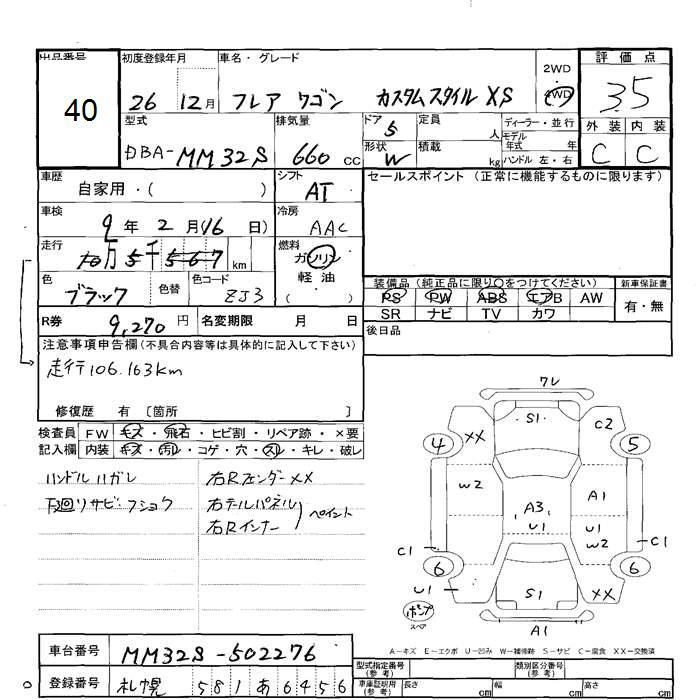 出品番号 初度登録年月 車名・グレード 2WD 評価点
40 26 12月 フレア ワゴン カスタムスタイル XS 4WD 3.5
型式 排気量 ドア 5 定員 人 ディーラー・並行 外装 内装
DBA-MM32S 660 cc 形状 W 積載 kg モデル年式 年 ハンドル 左・右 C C
車歴 自家用・( ) シフト AT セールスポイント (正常に機能するものに限ります)
車検 9年 2月 16日) 冷房 AAC
走行 10万 5千 567 km 燃料 ガソリン
色 ブラック 色替 色コード ZJ3 軽油 ( )
装備品 (純正品に限り○をつけてください) 新車保証書
PS PW ABS エアB AW 有・無
SR ナビ TV カワ
R券 9,270 円 名変期限 月 日 後日品
注意事項申告欄(不具合内容等は具体的に記入して下さい)
走行106.163km
修復歴 有 〔箇所 〕
検査員 FW キズ・飛石・ヒビ割・リペア跡・×要
記入欄 内装 キズ・汚レ・コゲ・穴・スレ・キレ・破レ
ハンドルハガレ 右Rフェンダー××
下廻リサビ・フショク 右テールパネル
右Rインナー ペイント
フレ
S1
4 XX C2 5
W2 A3 A1
U1 U1
W2
C1 C1
6 6
U1 S1 XX
ポンプ
スペア
A1
A−キズ E−エクボ U−凹み W−補修跡 S−サビ C−腐食 XX−交換済
車台番号 MM32S-502276
登録番号 札幌 581 あ 6456
型式指定番号 (参考) 類別区分番号 (参考)
車庫証明用 (参考) 長さ cm 幅 cm 高さ cm